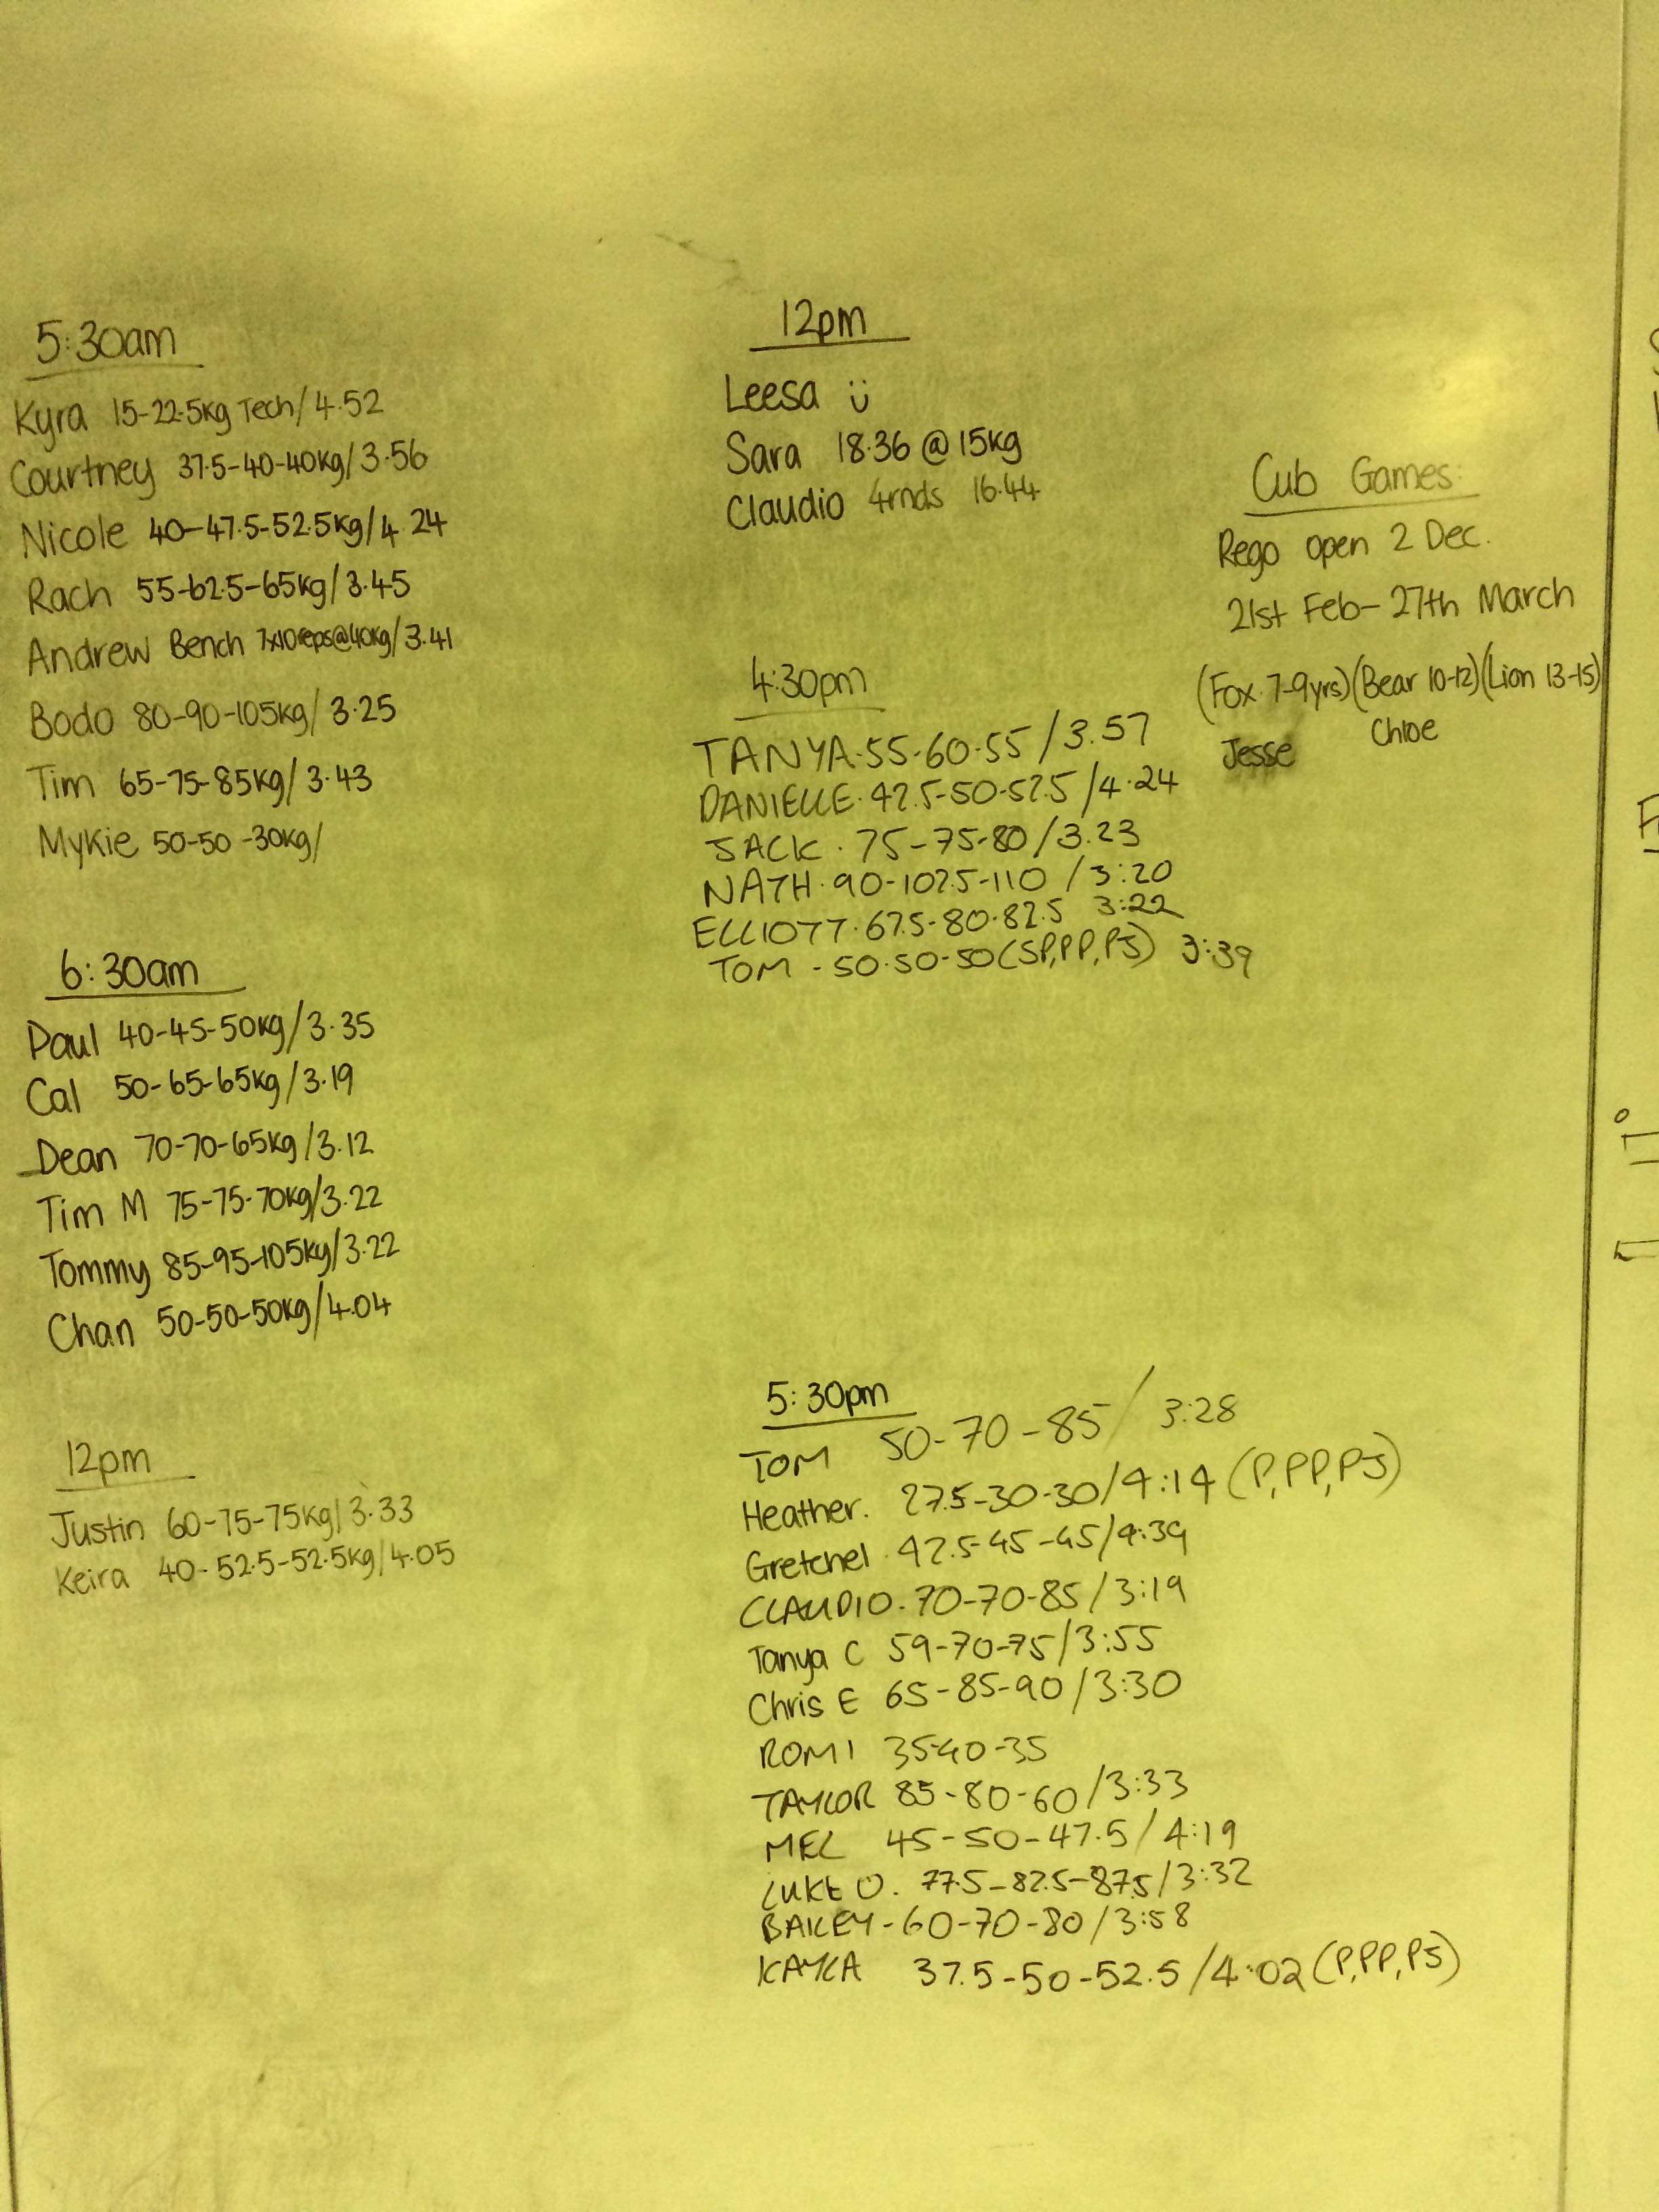 5:30am
Kyra 15-22.5kg Tech/4.52
Courtney 37.5-40-40kg/3.56
Nicole 40-47.5-52.5kg/4.24
Rach 55-62.5-65kg/3.45
Andrew Bench 7x10reps@40kg/3.41
Bodo 80-90-105kg/3.25
Tim 65-75-85kg/3.43
Mykie 50-50-30kg/
6:30am
Paul 40-45-50kg/3.35
Cal 50-65-65kg/3.19
Dean 70-70-65kg/3.12
Tim M 75-75-70kg/3.22
Tommy 85-95-105kg/3.22
Chan 50-50-50kg/4.04
12pm
Justin 60-75-75kg/3.33
Keira 40-52.5-52.5kg/4.05
12pm
Leesa ü
Sara 18.36 @ 15kg
Claudio 4rnds 16.44
4:30pm
TANYA.55-60-55/3.57
DANIELLE.42.5-50-52.5/4.24
JACK.75-75-80/3.23
NATH.90-102.5-110/3:20
ELLIOTT.67.5-80-82.5 3:22
TOM-50-50-50(SP,PP,PJ) 3:39
5:30pm
TOM 50-70-85/3:28
Heather. 27.5-30-30/4:14 (P,PP,PJ)
Gretchel 42.5-45-45/4:39
CLAUDIO.70-70-85/3:19
Tanya C 59-70-75/3:55
Chris E 65-85-90/3:30
ROMI 35-40-35
TAYLOR 85-80-60/3:33
MEL 45-50-47.5/4:19
LUKE O. 77.5-82.5-87.5/3:32
BAILEY-60-70-80/3:58
KAYLA 37.5-50-52.5/4:02 (P,PP,PJ)
Cub Games:
Rego open 2 Dec.
21st Feb-27th March
(Fox 7-9yrs)(Bear 10-12)(Lion 13-15)
Jesse Chloe